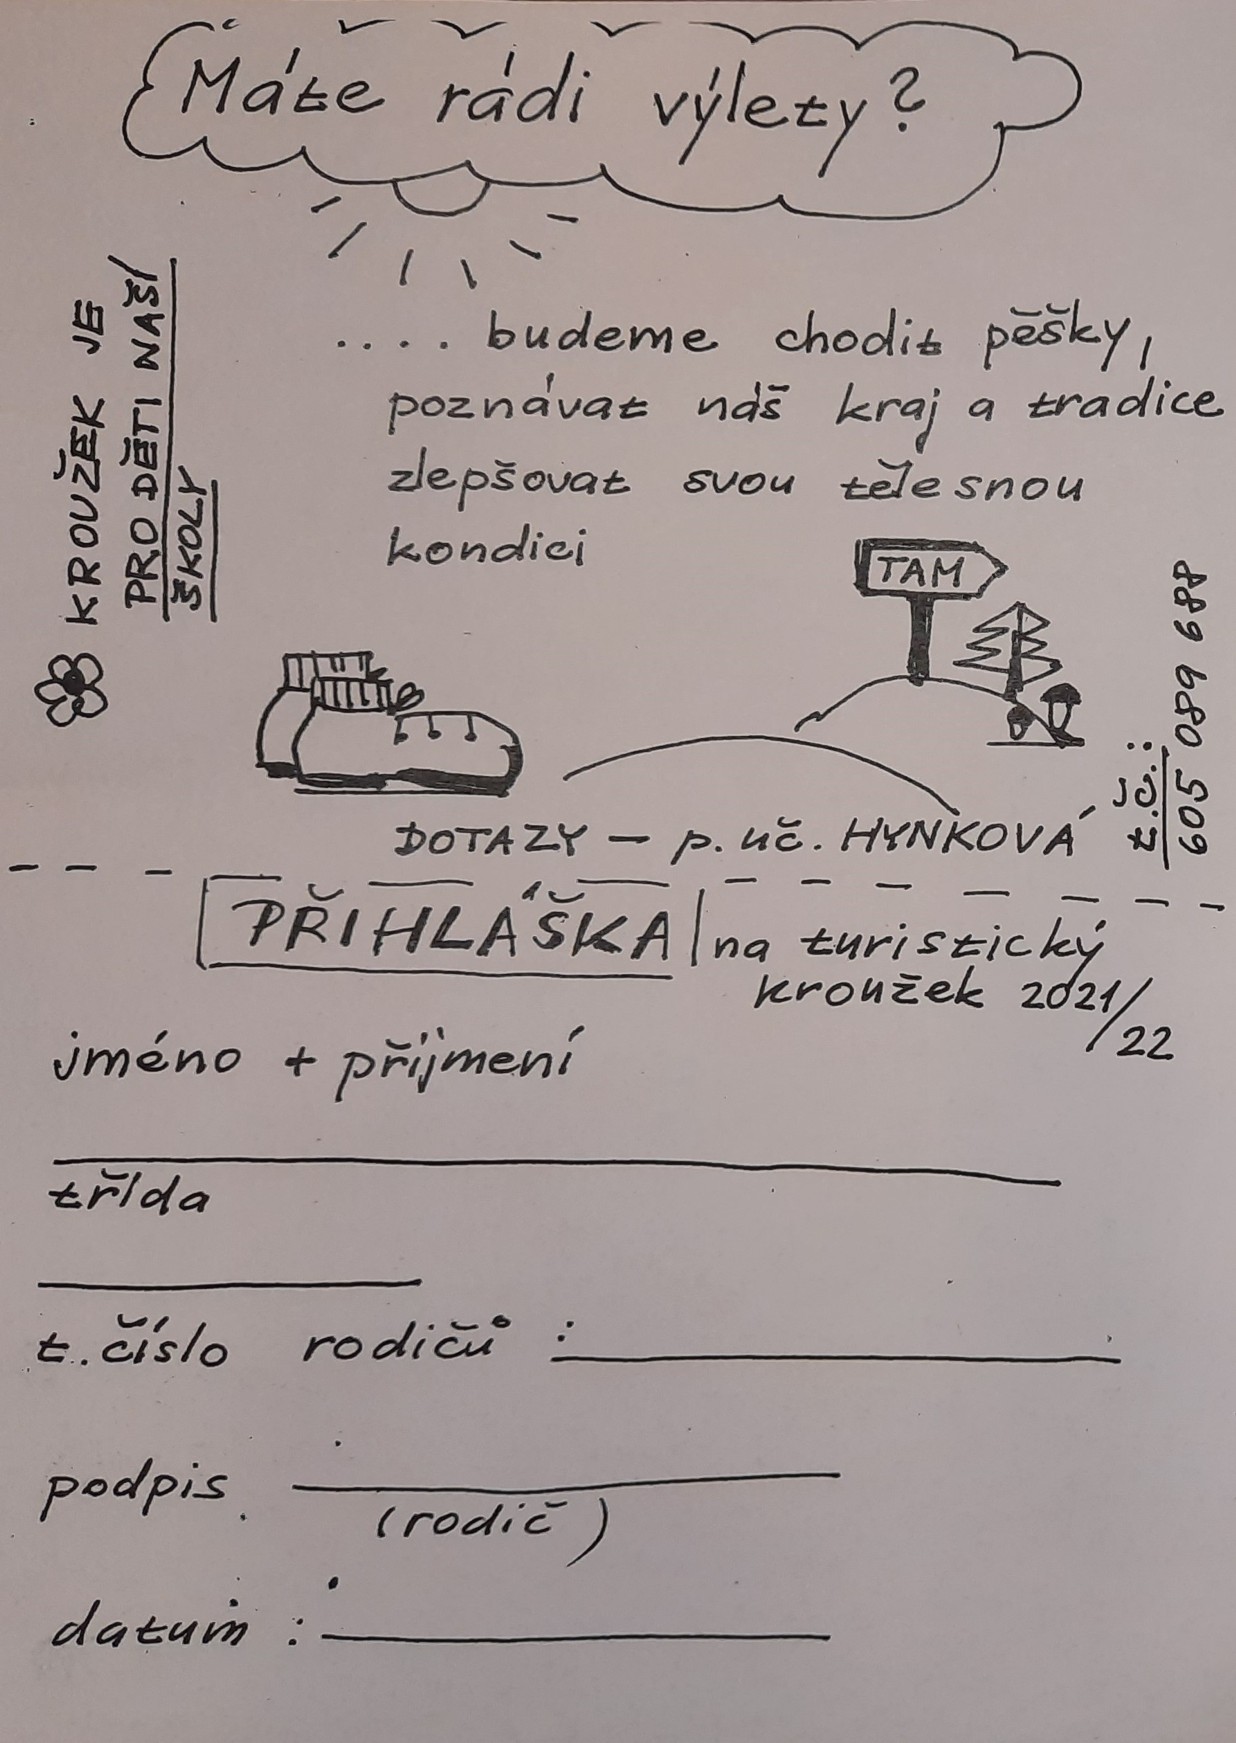 Máte rádi výlety?
KROUŽEK JE
PRO DĚTI NAŠÍ
ŠKOLY
.... budeme chodit pěšky,
poznávat náš kraj a tradice
zlepšovat svou tělesnou
kondici
TAM
DOTAZY – p. uč. HYNKOVÁ
t.č.:
605 089 688
PŘIHLÁŠKA na turistický
kroužek 2021/22
jméno + příjmení
třída
t. číslo rodičů :
podpis
(rodič)
datum :